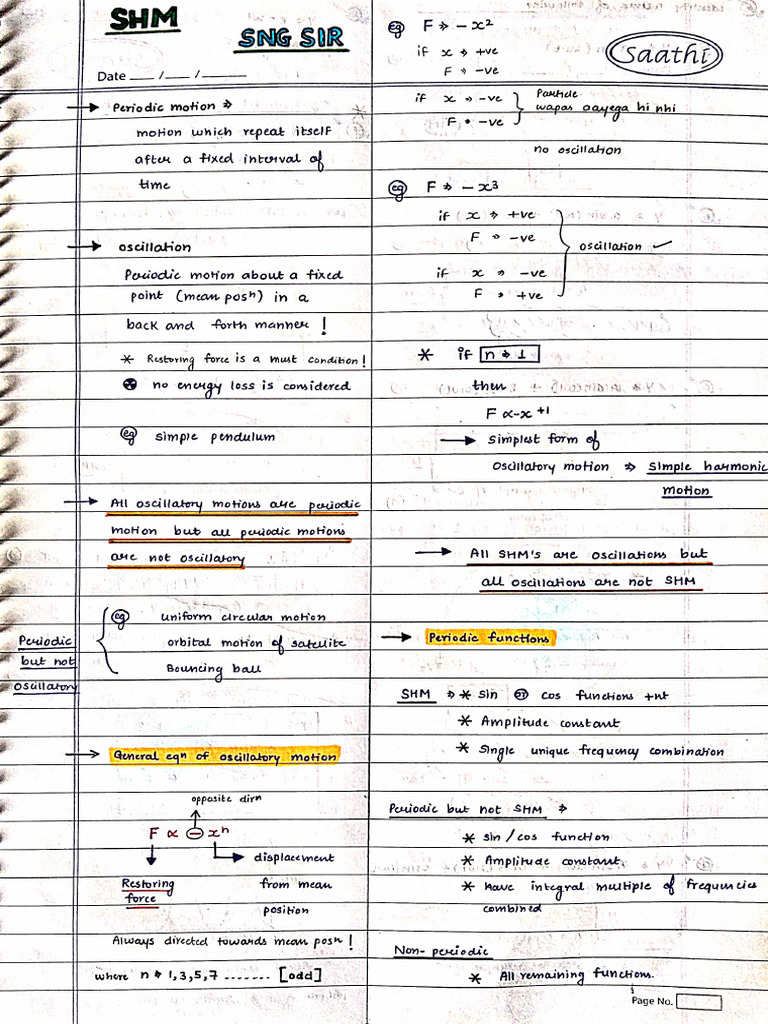 SHM
SNG SIR
Date ___ /___ /______
→ Periodic motion ⇒
motion which repeat itself
after a fixed interval of
time
→ oscillation
Periodic motion about a fixed
point (mean posⁿ) in a
back and forth manner !
* Restoring force is a must condition!
no energy loss is considered
eg simple pendulum
→ All oscillatory motions are periodic
motion but all periodic motions
are not oscillatory
Periodic
but not
oscillatory
eg uniform circular motion
orbital motion of satellite
Bouncing ball
→ General eqⁿ of oscillatory motion
opposite dirn
F ∝ ⊖ xⁿ
Restoring
force
displacement
from mean
position
Always directed towards mean posⁿ !
where n ⇒ 1,3,5,7 ....... [odd]
eg F ⇒ - x²
Saathi
if x ⇒ +ve
F ⇒ -ve
if x ⇒ -ve
F ⇒ -ve
Particle
wapas aayega hi nhi
no oscillation
eg F ⇒ - x³
if x ⇒ +ve
F ⇒ -ve
if x ⇒ -ve
F ⇒ +ve
oscillation ✓
* if n ⇒ 1
then
F ∝ -x⁺¹
→ simplest form of
Oscillatory motion ⇒ simple harmonic
motion
→ All SHM's are oscillations but
all oscillations are not SHM
→ Periodic functions
SHM ⇒ * sin or cos functions +nt
* Amplitude constant
* Single unique frequency combination
Periodic but not SHM ⇒
* sin / cos function
* Amplitude constant
* have integral multiple of frequencies
combined
Non- periodic
* All remaining functions.
Page No.